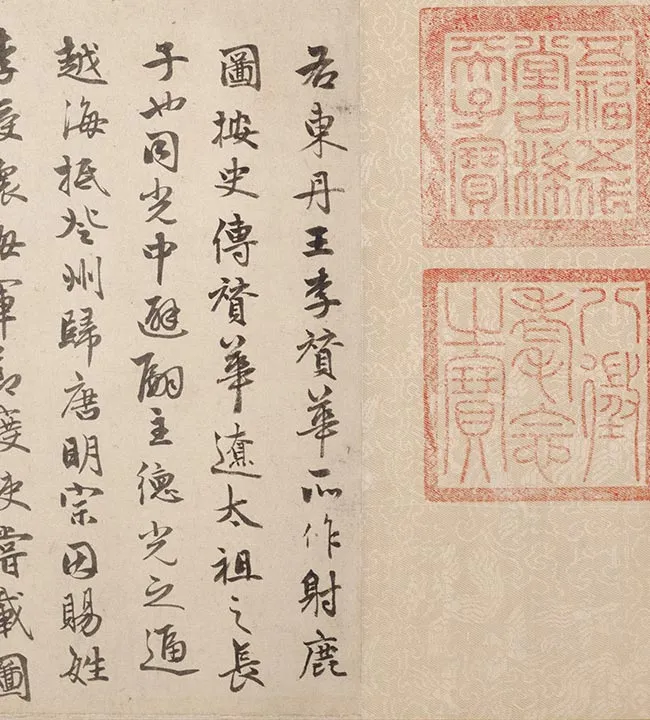 五福五代
堂古稀
天子寶
八徵
耄念
之寶
右東丹王李贊華所作射鹿
圖按史傳贊華遼太祖之長
子也同光中避嗣主德光之逼
越海抵登州歸唐明宗因賜姓
李軍節度使嘗載圖